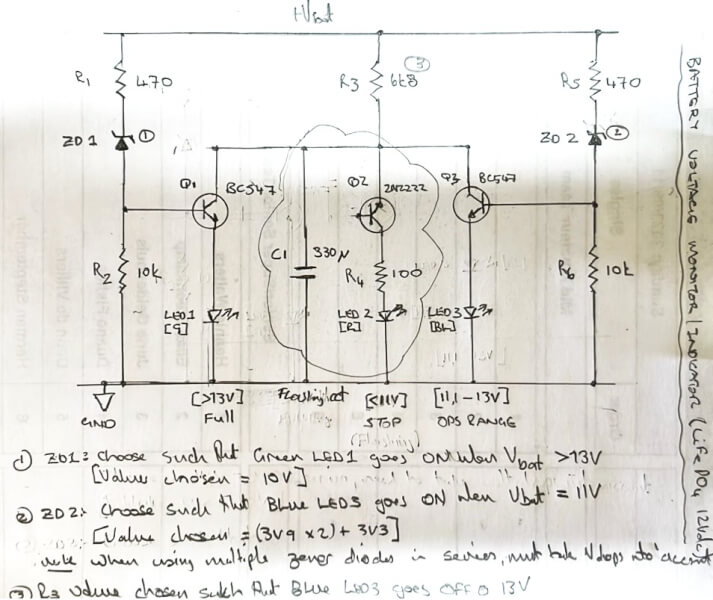 +Vbat
R1 470
R3 6k8 ③
R5 470
ZD1 ①
ZD2 ②
Q1 BC547
Q2 2N2222
Q3 BC547
R2 10k
C1 330N
R4 100
R6 10k
LED1 [G]
LED2 [R]
LED3 [BL]
GND
[>13V] Full
Flashing cct
[<11V] STOP (Flashing)
[11,1-13V] OPS RANGE
BATTERY VOLTAGE MONITOR/INDICATOR (LiFePO4 12Vdc)
① ZD1: choose such that Green LED1 goes ON when Vbat >13V
[Value chosen = 10V]
② ZD2: choose such that Blue LED3 goes ON when Vbat = 11V
[Value chosen = (3V9 x2) + 3V3]
note when using multiple zener diodes in series, must take Vdrops into account
③ R3 value chosen such that Blue LED3 goes OFF @ 13V